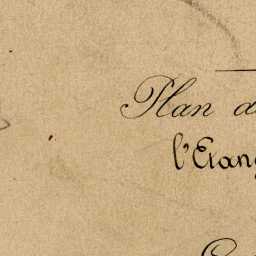 Plan d
l'Etang